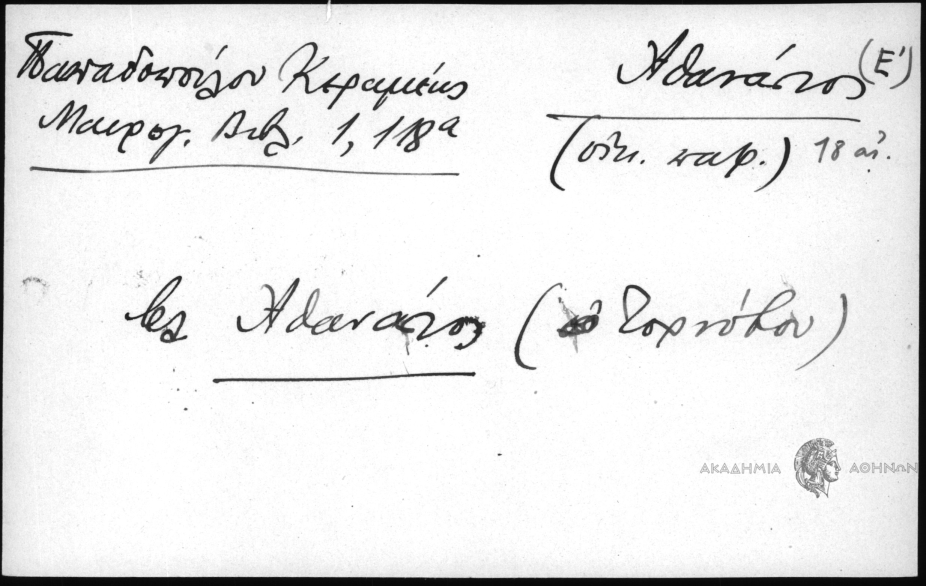 Παπαδοπούλου Κεραμέως
Μαυρογ. Βιβλ. 1, 118α
Ἀθανάσιος (Ε')
(οἰκ. πατρ.) 18 αἰ.
βλ Ἀθανάσιος (ὁ Τορνόβου)
ΑΚΑΔΗΜΙΑ ΑΘΗΝΩΝ